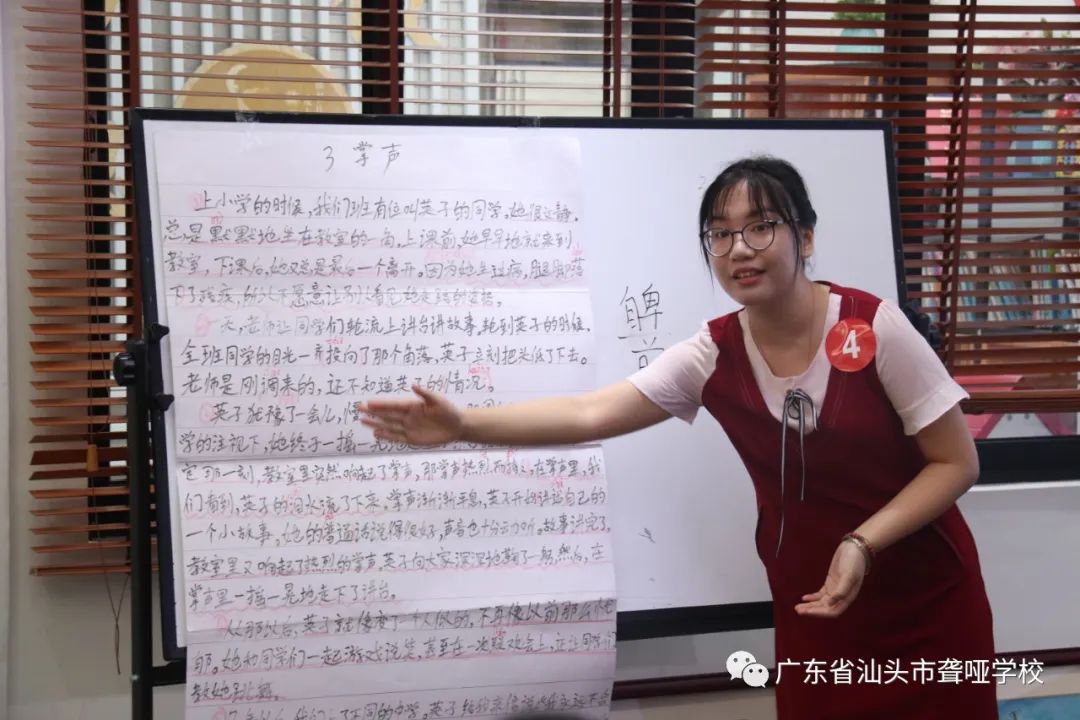 3 掌声
上小学的时候,我们班有位叫英子的同学。她很文静,
总是默默地坐在教室的一角。上课前,她早早地就来到
教室,下课后,她又总是最后一个离开。因为她生过病,腿脚落
下了残疾,所以不愿意让别人看见她走路的姿势。
一天,老师让同学们轮流上讲台讲故事。轮到英子的时候,
全班同学的目光一齐投向了那个角落,英子立刻把头低了下去。
老师是刚调来的,还不知道英子的情况。
英子犹豫了一会儿,慢
学的注视下,她终于一摇一晃地
定那一刻,教室里突然响起了掌声,那掌声热烈而持久。在掌声里,我
们看到,英子的泪水流了下来。掌声渐渐平息,英子开始讲述自己的
一个小故事。她的普通话说得很好,声音也十分动听。故事讲完了,
教室里又响起了热烈的掌声。英子向大家深深地鞠了一躬,然后,在
掌声里一摇一晃地走下了讲台。
从那以后,英子就像变了一个人似的,不再像以前那么忧
郁。她和同学们一起游戏说笑,甚至在一次联欢会上,还让同学们
教她跳舞。
4
广东省汕头市聋哑学校